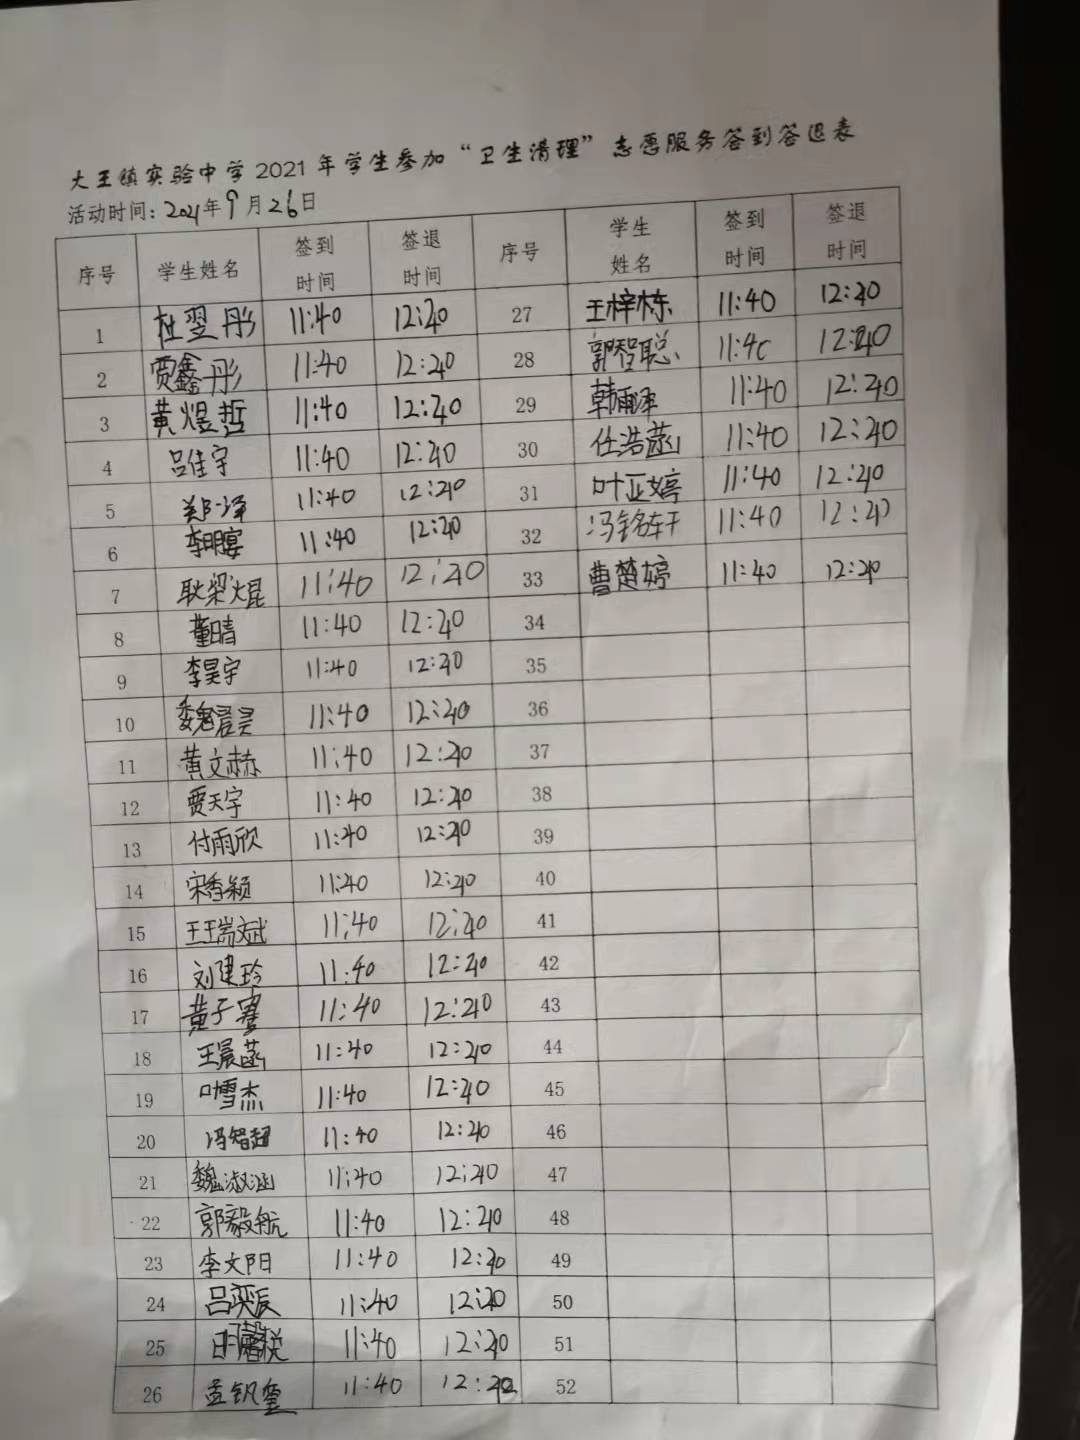 大王镇实验中学2021年学生参加“卫生清理”志愿服务签到签退表
活动时间：2021年9月26日
序号 学生姓名 签到时间 签退时间 序号 学生姓名 签到时间 签退时间
1 杜翌彤 11:40 12:20 27 王梓栋 11:40 12:20
2 贾鑫彤 11:40 12:20 28 郭智聪 11:40 12:20
3 黄煜哲 11:40 12:20 29 韩雨泽 11:40 12:20
4 吕佳宇 11:40 12:20 30 任浩菡 11:40 12:20
5 郑泽 11:40 12:20 31 叶亚婷 11:40 12:20
6 李明宴 11:40 12:20 32 冯铭轩 11:40 12:20
7 耿梁焜 11:40 12:20 33 曹楚婷 11:40 12:20
8 董晴 11:40 12:20 34
9 李昊宇 11:40 12:20 35
10 魏晨昊 11:40 12:20 36
11 黄文赫 11:40 12:20 37
12 贾天宇 11:40 12:20 38
13 付雨欣 11:40 12:20 39
14 宋香颖 11:40 12:20 40
15 王瑞斌 11:40 12:20 41
16 刘建玲 11:40 12:20 42
17 黄子骞 11:40 12:20 43
18 王晨菡 11:40 12:20 44
19 叶雪杰 11:40 12:20 45
20 冯智超 11:40 12:20 46
21 魏淑涵 11:40 12:20 47
22 郭毅航 11:40 12:20 48
23 李文阳 11:40 12:20 49
24 吕奕辰 11:40 12:20 50
25 11:40 12:20 51
26 孟钒奎 11:40 12:20 52